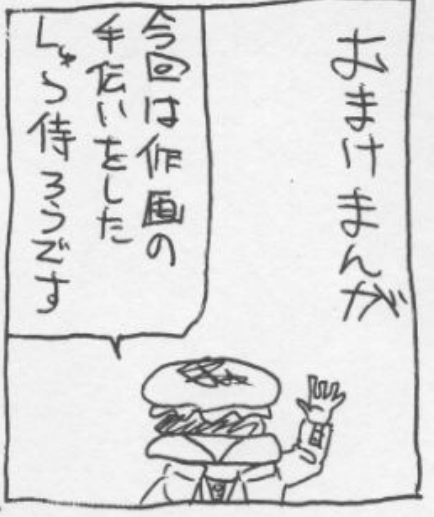 おまけまんが
今回は作画の
手伝いをした
しゅら侍ろうです